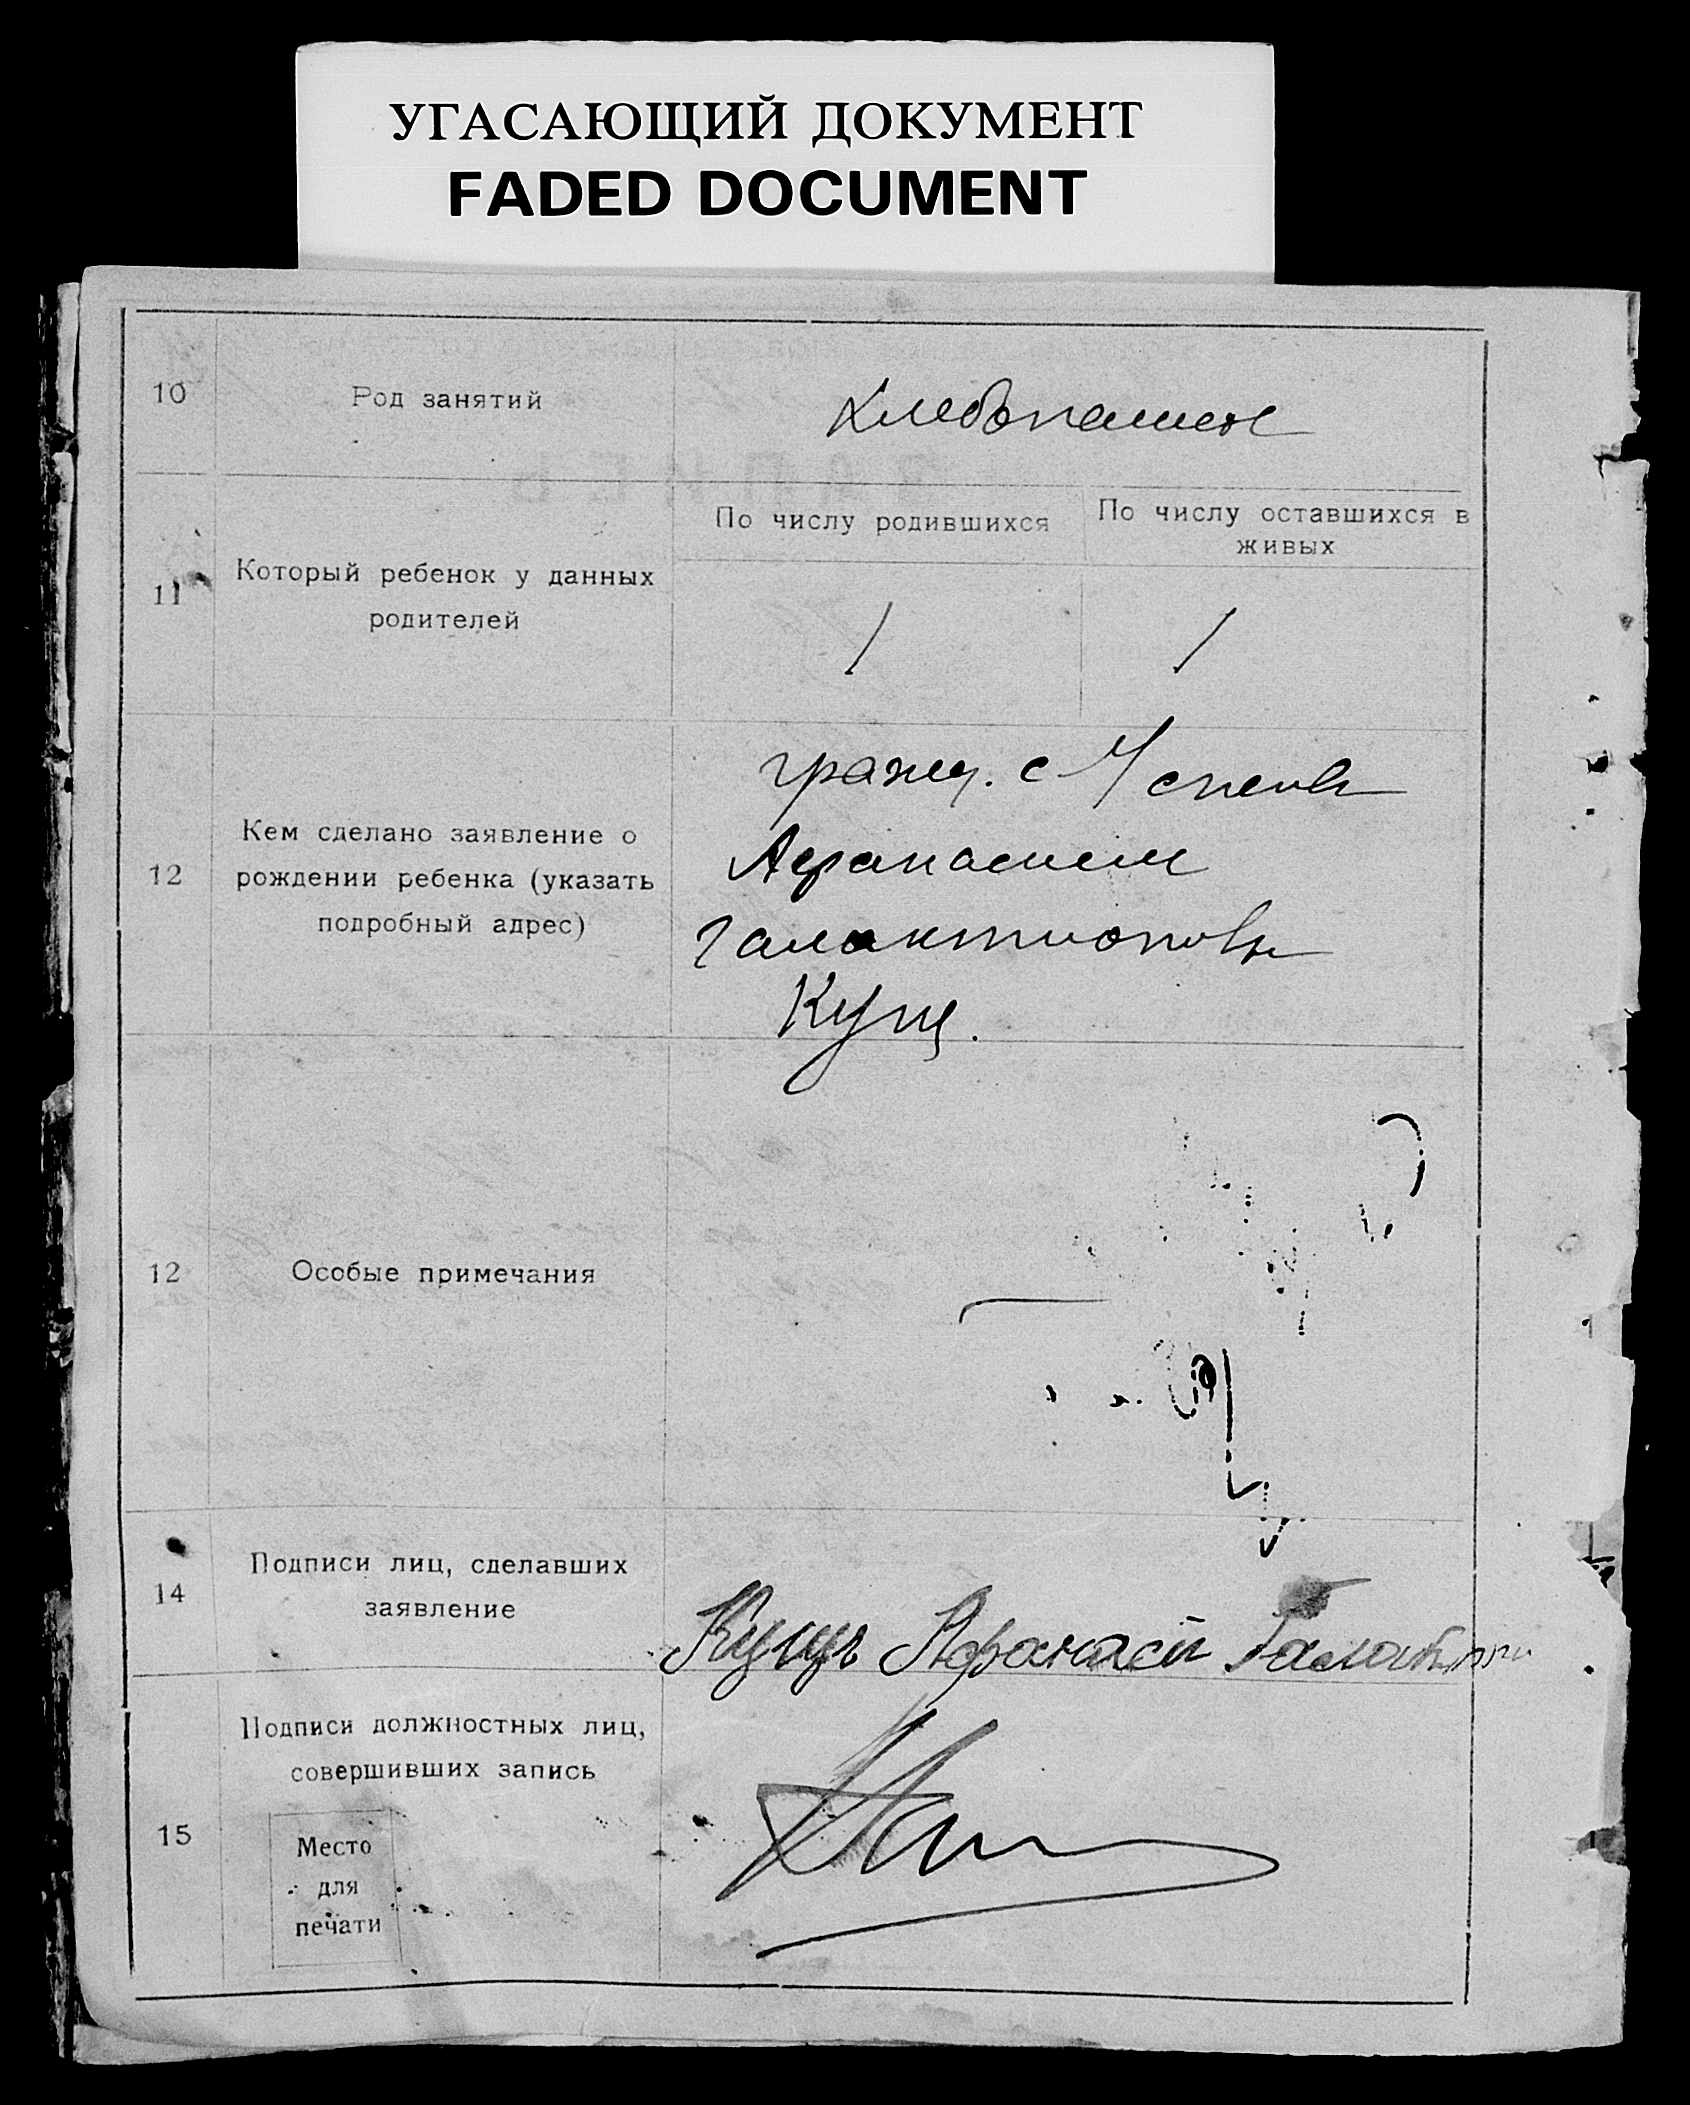 УГАСАЮЩИЙ ДОКУМЕНТ
FADED DOCUMENT
10
Род занятий
Хлебопашец
11
Который ребенок у данных
родителей
По числу родившихся
По числу оставшихся в
живых
1
1
12
Кем сделано заявление о
рождении ребенка (указать
подробный адрес)
гражд. с
Афанасием
Галактионов
Кущ.
12
Особые примечания
14
Подписи лиц, сделавших
заявление
Афанасей
15
Подписи должностных лиц,
совершивших запись
Место
для
печати